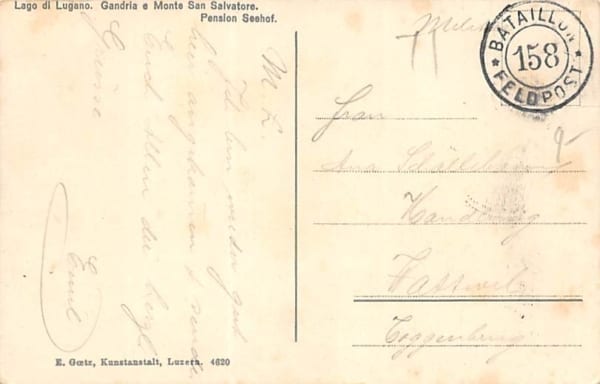 Lago di Lugano. Gandria e Monte San Salvatore.
Pension Seehof.
BATAILLON
158
FELDPOST
M. L.
Ich bin wieder gut
hier angekommen & sende
Euch Allen die herzl.
Grüsse
Emil
Frau
Handlung
Wattwil
Toggenburg
9-
E. Gœtz, Kunstanstalt, Luzern. 4620